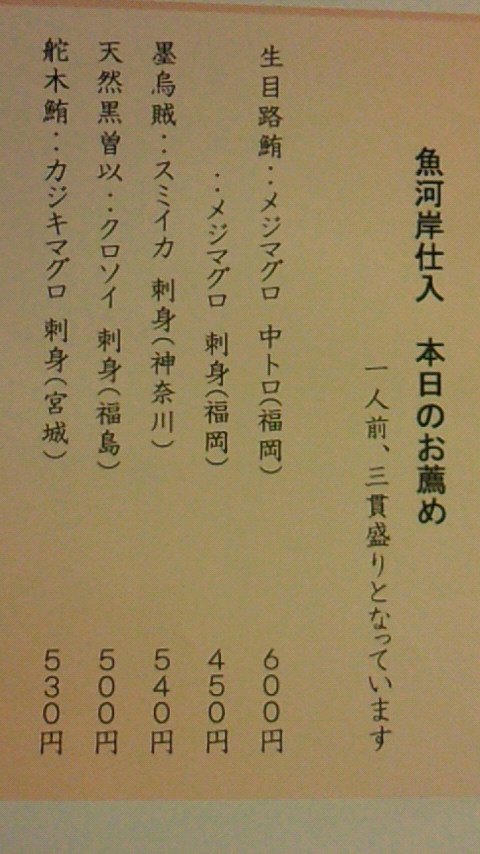 魚河岸仕入　本日のお薦め
一人前、三貫盛りとなっています
生目路鮪：メジマグロ　中トロ（福岡）　600円
：メジマグロ　刺身（福岡）　450円
墨烏賊：スミイカ　刺身（神奈川）　540円
天然黒曽以：クロソイ　刺身（福島）　500円
舵木鮪：カジキマグロ　刺身（宮城）　530円